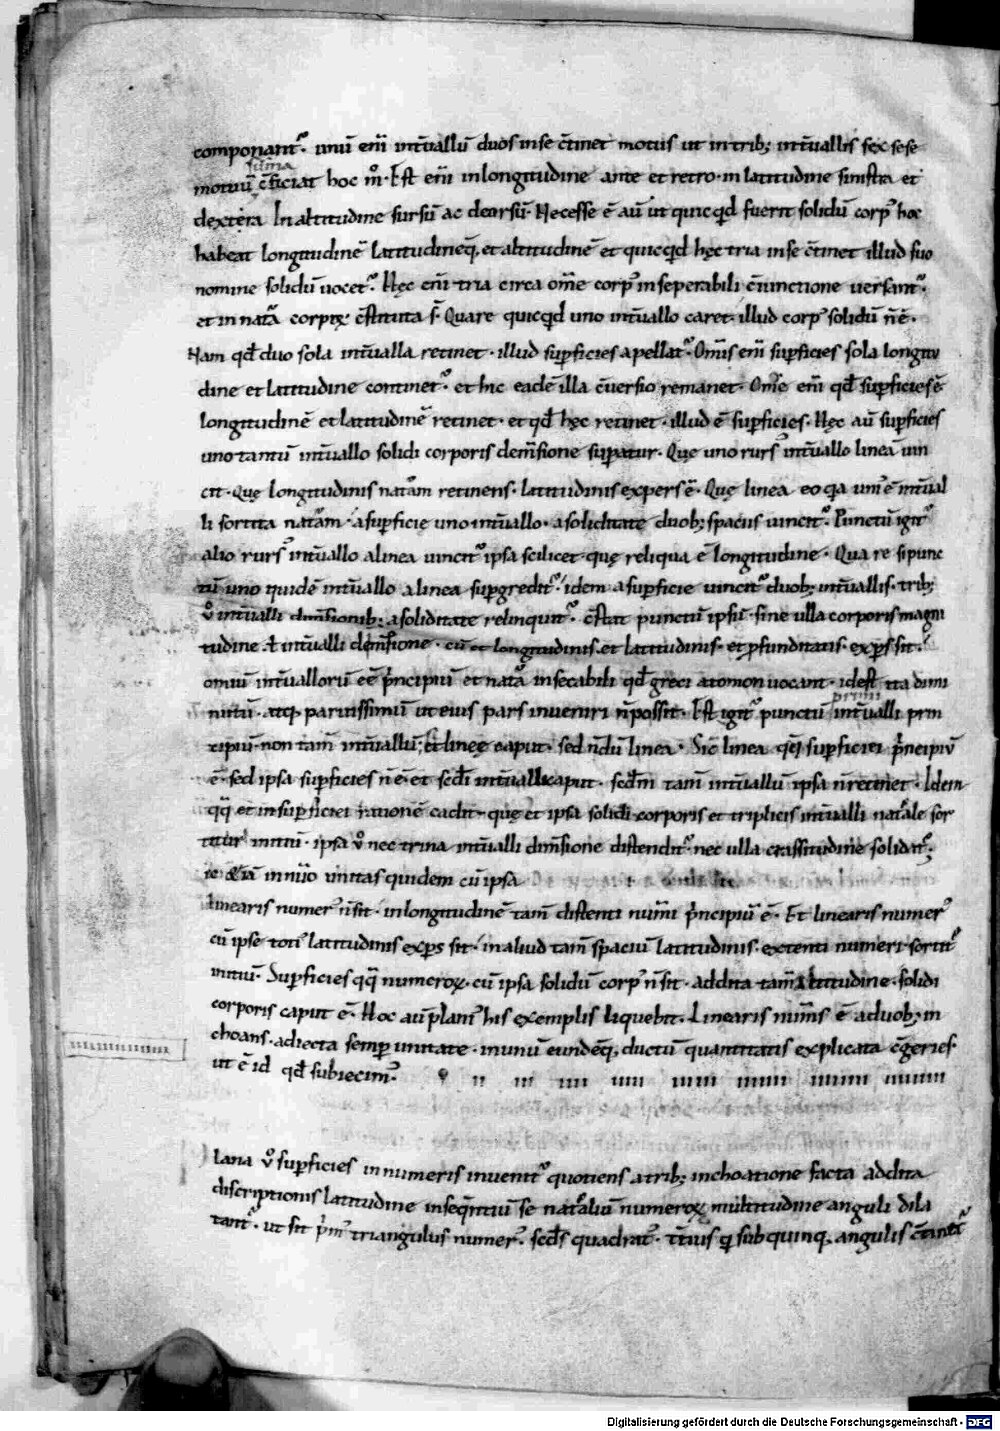 componant᷒. unū eni᷒ int̄uallū duos inse c̄tinet motus ut intrib; int̄uallis sex sese
sūma
motuū c̄ficiat hoc m̊. Est eni᷒ inlongitudine ante et retro. in latitudine sinistra et
dextera In altitudine sursū ac deorsū. Necesse ē aū ut quicq͑d fuerit solidū corp᷒ hoc
habeat longitudinē latitudinēq, et altitudinē et quicq͑d hęc tria inse c̄tinet illud suo
nomine solidū uocet᷒. Hęc eni᷒ tria circa om̄e corp᷒ inseperabili c̄iunctione uersant᷒.
et in nat᷒a corpoꝝ c̄stituta s̄. Quare quicq͑d uno int̄uallo caret. illud corp᷒ solidū n̄ ē.
Nam qd̄ duo sola int̄ualla retinet. illud sup̄ficies apellat᷒. Om̄is eni᷒ sup̄ficies sola longitu
dine et latitudine continet᷒. et hic eadē illa c̄uersio remanet. Om̄e eni᷒ qd̄ sup̄ficies ē
longitudinē et latitudinē retinet. et qd̄ hęc retinet. illud ē sup̄ficies. Hęc aū sup̄ficies
uno tantū int̄uallo solidi corporis dem̄sione sup̄atur. Quę uno rurs᷒ int̄uallo lineā uin
cit. Quę longitudinis nat᷒am retinens. latitudinis expers ē. Quę linea eo qa uni᷒ ē int̄ual
li sortita nat᷒am. a sup̄ficie uno int̄uallo. a soliditate duob; spaciis uincit᷒. Punctū igit᷒
alio rurs᷒ int̄uallo a linea uincit᷒ ipsa scilicet. quę reliqua ē longitudine. Qua re si punc
tū uno quidē int̄uallo a linea sup̄gredit᷒. idem a sup̄ficie uincit᷒ duob; int̄uallis. trib;
v̊ int̄ualli dim̄sionib; a soliditate relinquit᷒. c̄stat punctū ipsū. sine ulla corporis magni
tudine. ł int̄ualli dem̄sione. cū et longitudinis. et latitudinis. et p̄funditatis. expers sit.
omiū int̄uallorū eē p̄ncipiū et nat᷒a insecabili qd̄ greci atomon uocant. idest ita dimi
primi
nutū. atq; paruissimū ut eius pars inueniri n̄ possit. Est igit᷒ punctū int̄ualli prin
cipiū. non tam̄ int̄uallū. et lineę caput. sed n̄dū linea. Sic linea qq̄ sup̄ficiei p̄ncipiū
ē. sed ipsa sup̄ficies n̄ ē. et sc̄di int̄ualli caput. sc̄dm̄ tam̄ int̄uallū ipsa n̄ retinet. Idem
qq̄ et in sup̄ficiei rationē cadit. quę et ipsa solidi corporis et triplicis int̄ualli nat᷒ale sor
titur initiū. ipsa v̊ nec trina int̄ualli dim̄sione distendit᷒. nec ulla crassitudine solidat᷒.
unitas quidem cū ipsa
linearis numer᷒ n̄ sit. in longitudinē tam̄ distenti num̄i p̄ncipiū ē. Et linearis numer᷒
cū ipse toti᷒ latitudinis expers sit. in aliud tam̄ spaciū latitudinis. extenti numeri. sortit᷒
initiū. Sup̄ficies qq̄ numeroꝝ. cū ipsa solidū corp᷒ n̄ sit. addita tam̄ altitudine. solidi
corporis caput ē. Hoc aū plani᷒ his exemplis liquebit. Linearis num̄s ē a duob; in
choans. adiecta semp̄ unitate. in unū eundēq, ductū quantitatis explicata c̄geries.
ut ē id qd̄ subiecim᷒. ıı ııı ıııı ııııı ıııııı ııııııı ıııııııı ııııııııı
lana v̊ sup̄ficies in numeris inuenit᷒ quotiens a trib; inchoatione facta addita
discriptionis latitudine inseq̄ntiū se nat᷒aliū numeroꝝ multitudine anguli dila
tant᷒. ut sit p̄m᷒ triangulus numer᷒. sc̄ds quadrat᷒. t̄tius q͑ sub quinq, angulis c̄tinet᷒
Digitalisierung gefördert durch die Deutsche Forschungsgemeinschaft - DFG